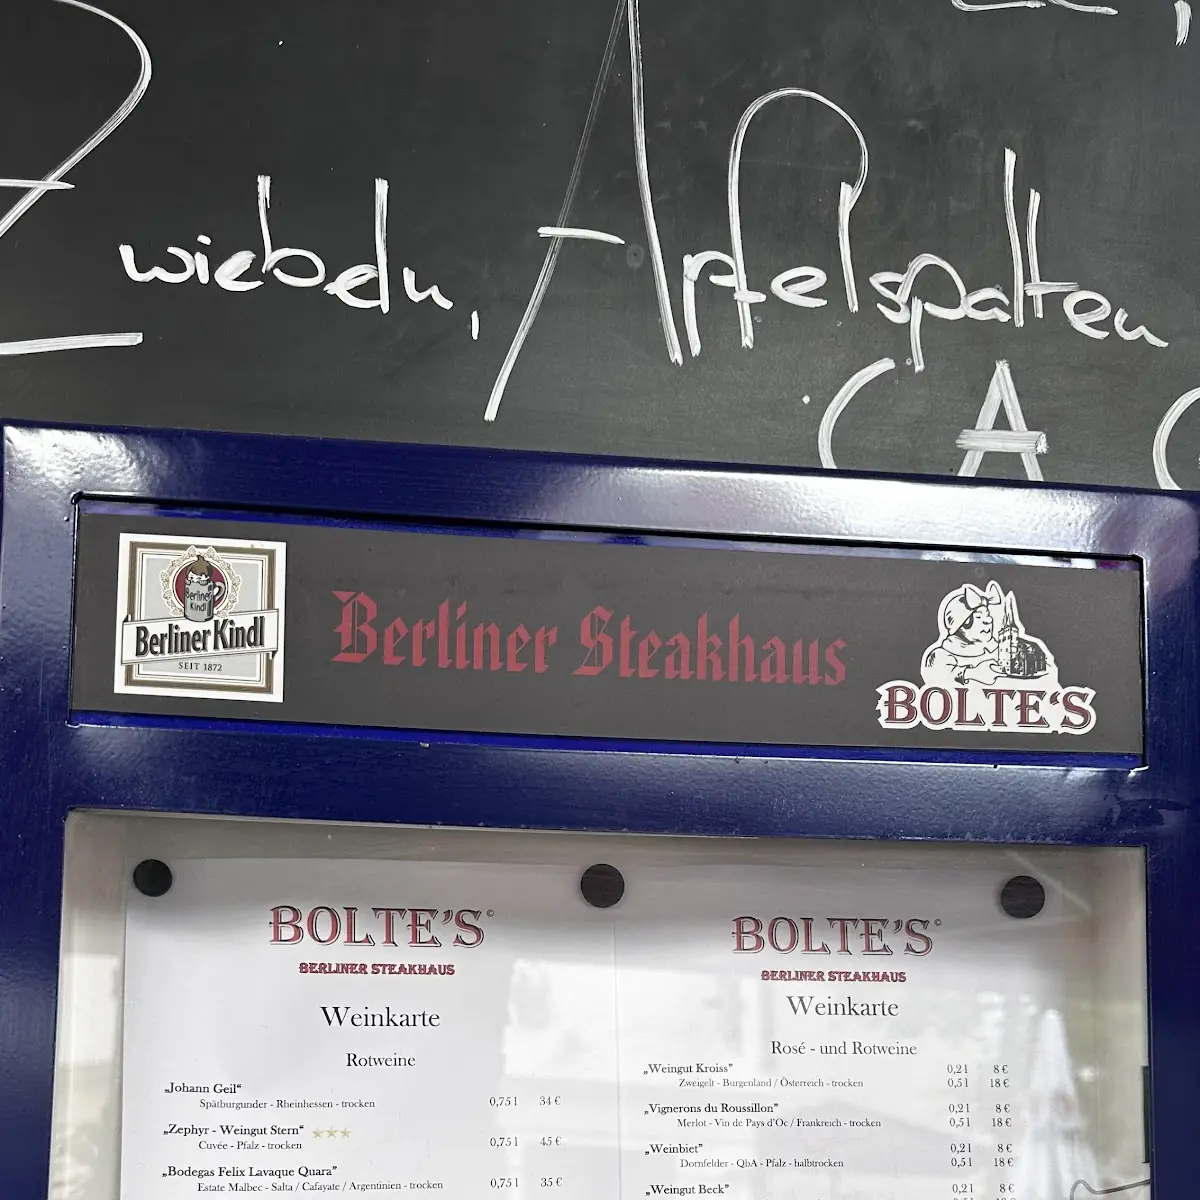 Zwiebeln, Apfelspalten
CA
Berliner
Kindl
Berliner Kindl
SEIT 1872
Berliner Steakhaus
BOLTE'S
BOLTE'S©
BERLINER STEAKHAUS
Weinkarte
Rotweine
„Johann Geil“
Spätburgunder - Rheinhessen - trocken 0,75 l 34 €
„Zephyr - Weingut Stern“
Cuvée - Pfalz - trocken 0,75 l 45 €
„Bodegas Felix Lavaque Quara”
Estate Malbec - Salta / Cafayate / Argentinien - trocken 0,75 l 35 €
BOLTE'S©
BERLINER STEAKHAUS
Weinkarte
Rosé - und Rotweine
„Weingut Kroiss” 0,2 l 8 €
Zweigelt - Burgenland / Österreich - trocken 0,5 l 18 €
„Vignerons du Roussillon” 0,2 l 8 €
Merlot - Vin de Pays d'Oc / Frankreich - trocken 0,5 l 18 €
„Weinbiet” 0,2 l 8 €
Dornfelder - QbA - Pfalz - halbtrocken 0,5 l 18 €
„Weingut Beck” 0,2 l 8 €